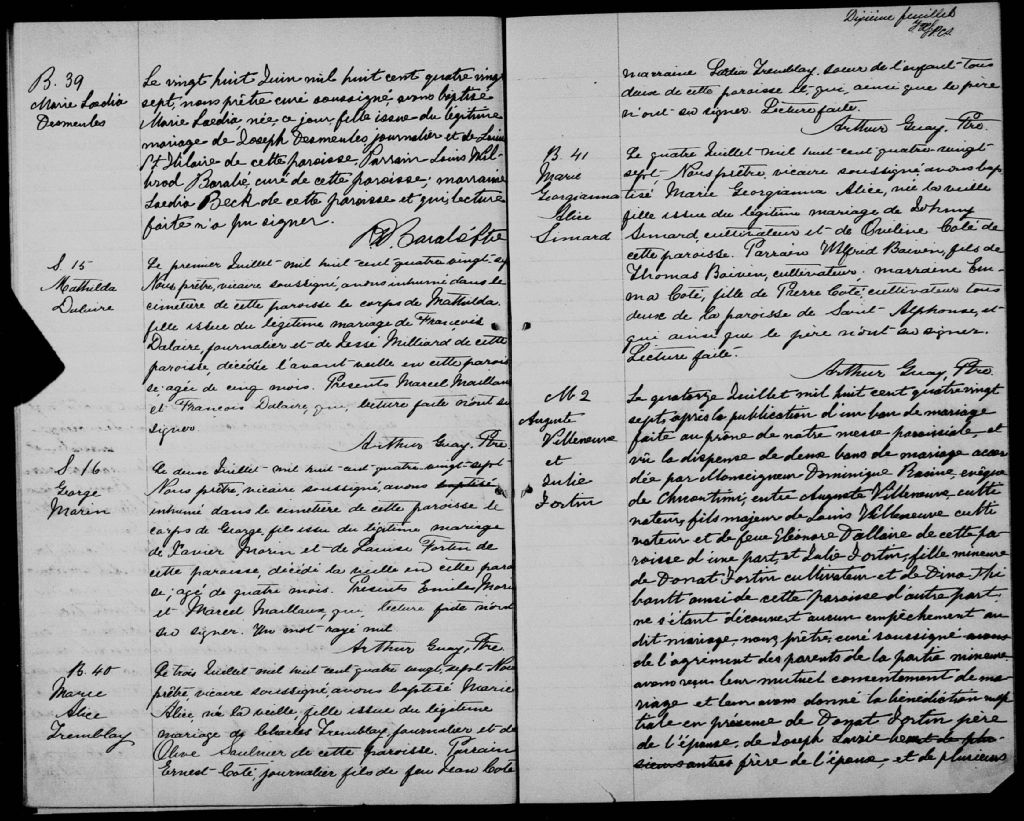 B. 39
Marie Lœdia
Desmeules
Le vingt huit Juin mil huit cent quatre vingt
sept, nous prêtre curé soussigné, avons baptisé
Marie Lœdia née, ce jour fille issue du légitime
mariage de Joseph Desmeules journalier et de Louise
St Hilaire de cette paroisse, Parrain Louis Wil-
brod Barabé, curé de cette paroisse; marraine
Lœdia Beck de cette paroisse et qui, lecture
faite n'a pu signer.
Barabé Ptre
S. 15
Mathilda
Dalaire
Le premier Juillet mil huit cent quatre vingt-sept
Nous prêtre, vicaire soussigné, avons inhumé dans le
cimetère de cette paroisse le corps de Mathilda
fille issue du légitime mariage de Francois
Dalaire, journalier et de Milliard de cette
paroisse, décédée l'avant veille en cette parois
se; agée de cinq mois. Présents Marcel Maillaux
et Francois Dalaire, qui, lecture faite n'ont su
signer
Arthur Guay, Ptre
S. 16
George
Morin
Le deux Juillet mil huit cent quatre vingt-sept
Nous prêtre, vicaire soussigné, avons baptisé
inhumé dans le cimetère de cette paroisse le
corps de George, fils issu du légitime mariage
de Xavier Morin et de Louise Fortin de
cette paroisse, décédé la veille en cette parois
se; agé de quatre mois. Présents Emile Morin
et Marcel Maillaux, qui, lecture faite n'ont
su signer. Un mot rayé nul
Arthur Guay, Ptre
B. 40
Marie
Alice
Tremblay
Le trois Juillet mil huit cent quatre vingt, sept Nous
prêtre, vicaire soussigné, avons baptisé Marie
Alice, née la veille, fille issue du légitime
mariage de Charles Tremblay, journalier et de
Olive Saulnier de cette paroisse. Parrain
Ernest Coté, journalier fils de feu Jean Coté
Dixième feuillet
marraine Lœdia Tremblay, sœur de l'enfant tous
deux de cette paroisse et, qui, ainsi que le père
n'ont su signer. Lecture faite.
Arthur Guay, Ptre
B. 41
Marie
Georgianna
Alice
Simard
Le quatre Juillet mil huit cent quatre vingt
sept Nous prêtre, vicaire soussigné, avons bap
tisé Marie Georgianna Alice, née la veille
fille issue du légitime mariage de Johnny
Simard, cultivateur et de Oveline Coté de
cette paroisse. Parrain Wilfrid Boiven, fils de
Thomas Boiven, cultivateur. marraine Em-
ma Coté, fille de Pierre Coté, cultivateur tous
deux de la paroisse de Saint Alphonse, et
qui ainsi que le père n'ont su signer.
Lecture faite.
Arthur Guay, Ptre
M 2
Auguste
Villeneuve
et
Julie
Fortin
Le quatorze Juillet mil huit cent quatre vingt
sept, après la publication d'un ban de mariage
faite au prône de notre messe paroissiale, et
vû la dispense de deux bans de mariage accor
dée par Monseigneur Dominique Racine, evêque
de Chicoutimi, entre Auguste Villeneuve, culti
vateur, fils majeur de Louis Villeneuve culti
vateur et de feue Eléonore Dallaire de cette pa
roisse d'une part, et Julie Fortin, fille mineure
de Donat Fortin cultivateur et de Dina Thi
bault aussi de cette paroisse d'autre part;
ne s'étant découvert aucun empêchement au
dit mariage, nous, prêtre, curé soussigné avons
de l'agrément des parents de la partie mineure
avons reçu leur mutuel consentement de ma
riage et leur avons donné la bénédiction nup
tiale en présence de Donat Fortin père
de l'épouse, de Joseph et de plu-
sieurs autres frère de l'époux, et de plusieurs